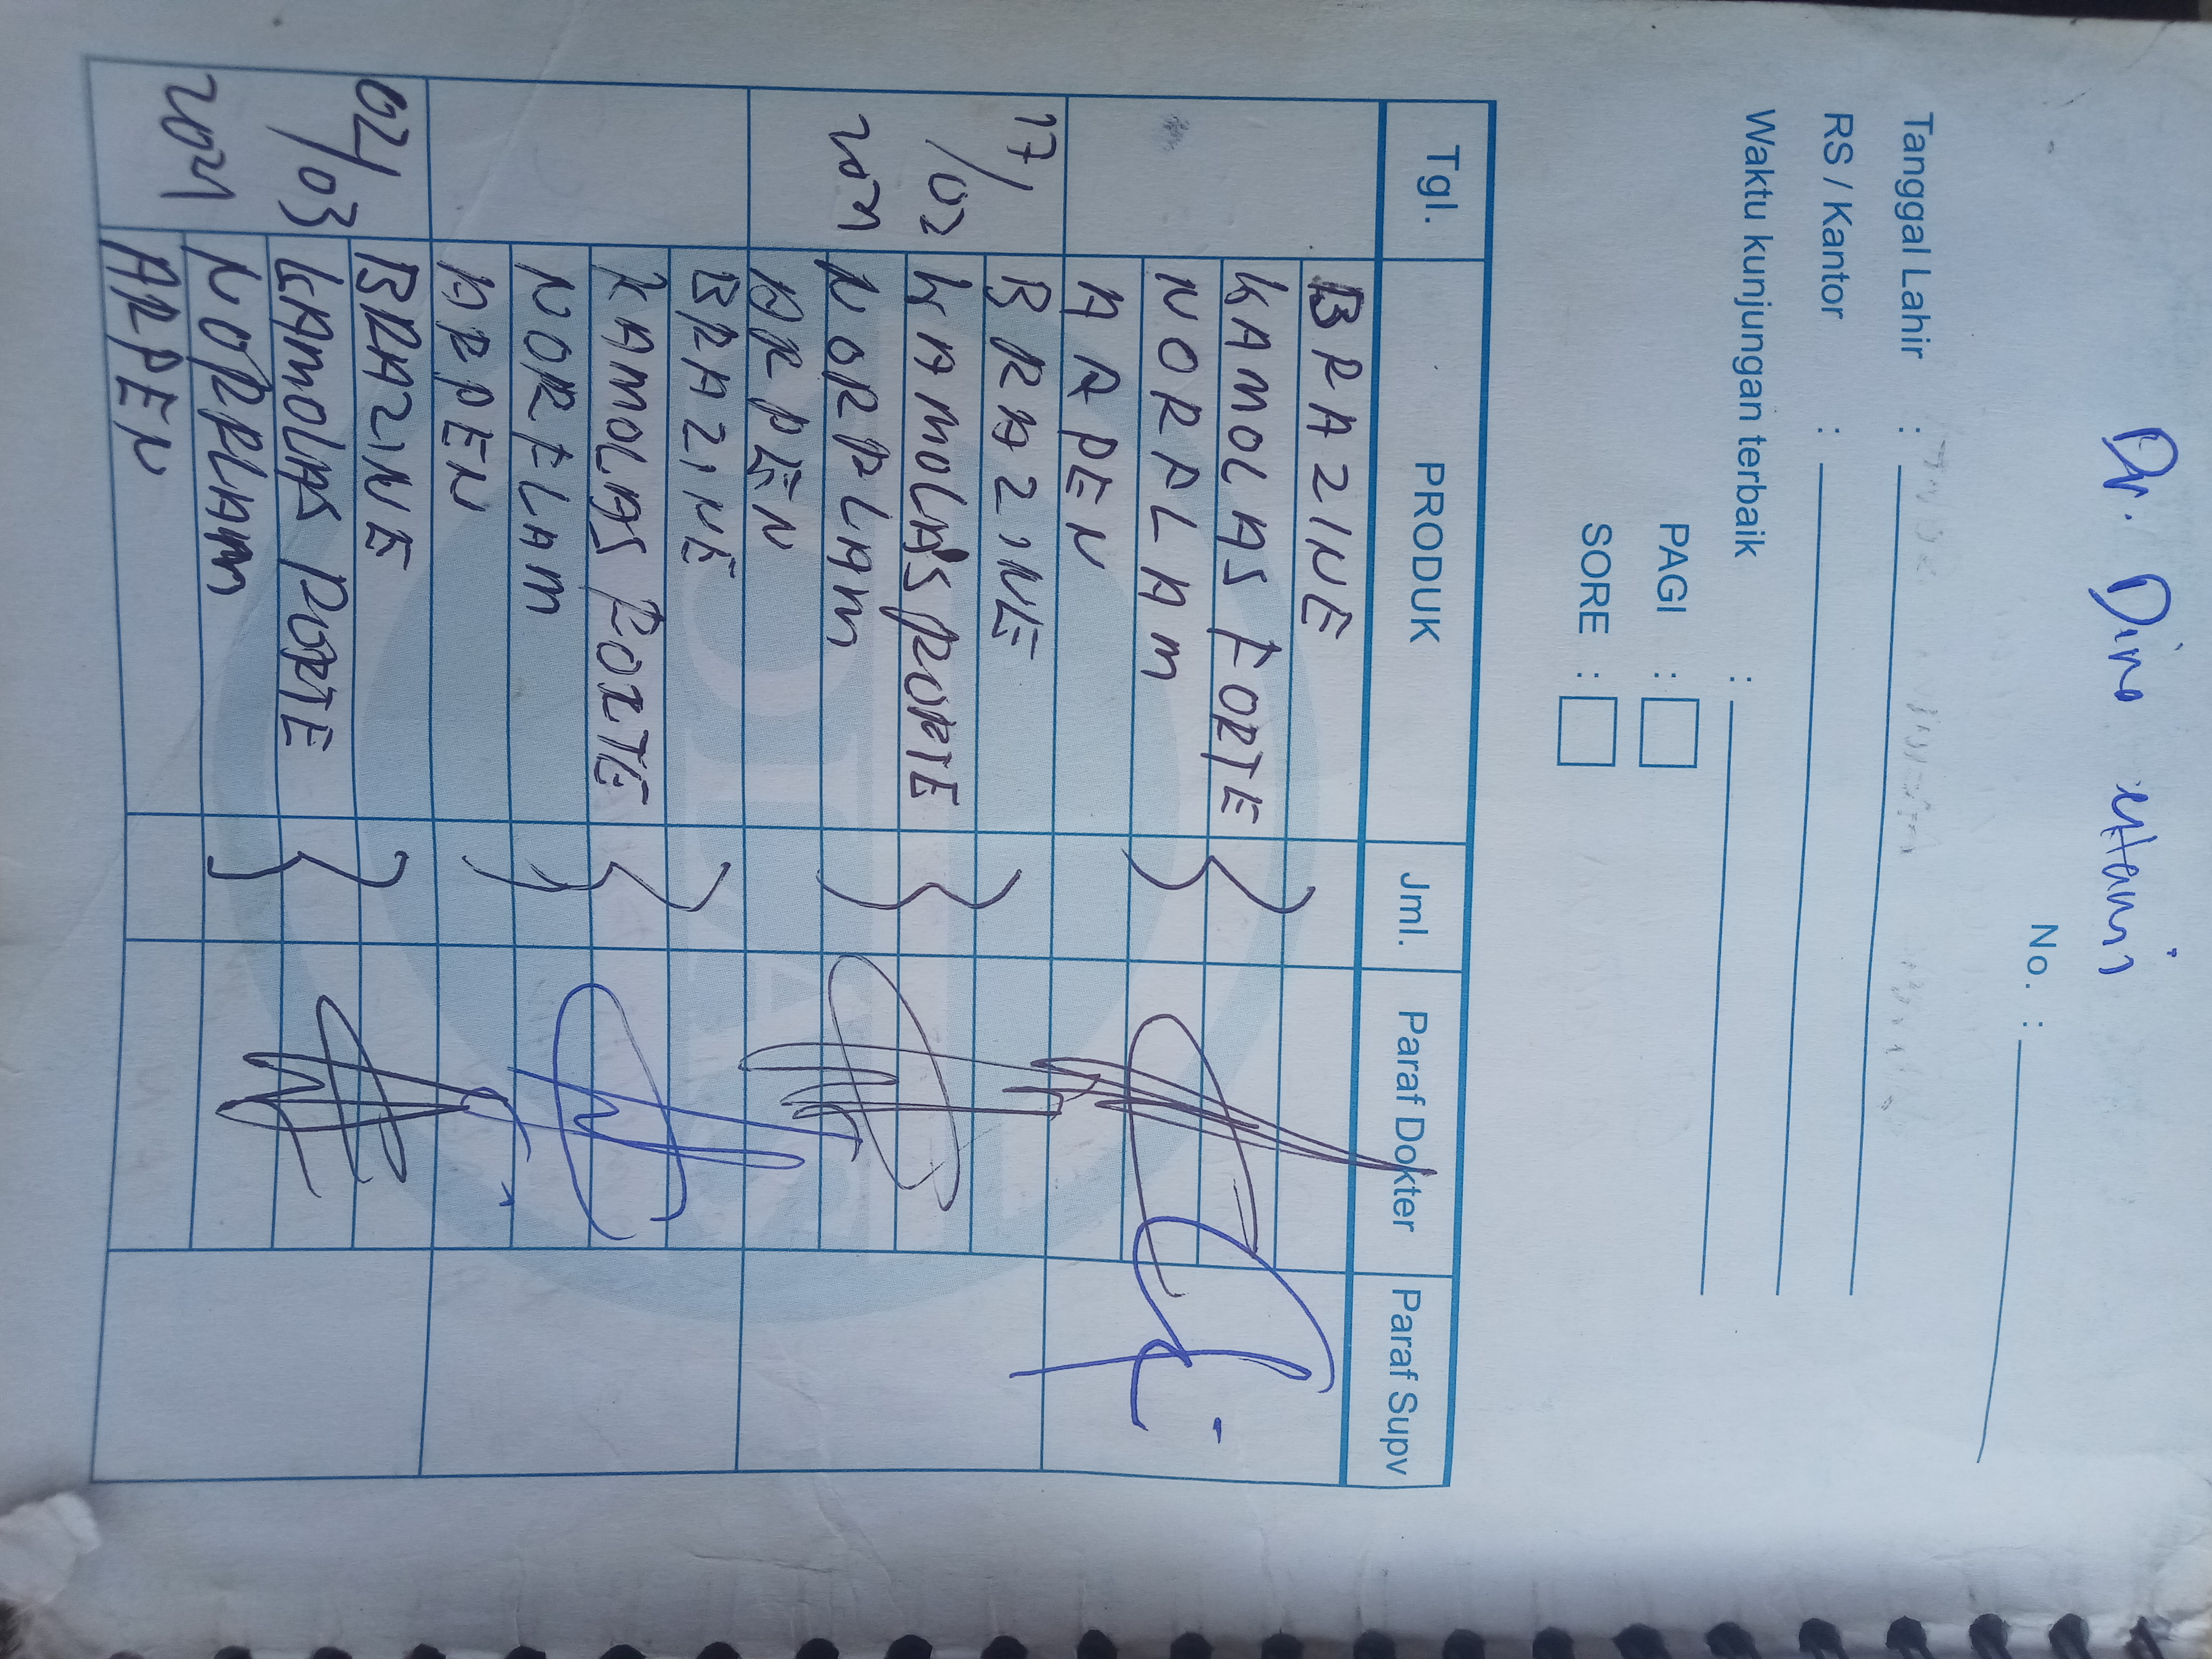 Dr. Dino
No. :
Tanggal Lahir :
RS / Kantor :
Waktu kunjungan terbaik :
PAGI :
SORE :
Tgl. PRODUK Jml. Paraf Dokter Paraf Supv
BRAZINE
KAMOLAS FORTE
NORFLAM
ARPEN
17/02 2021 BRAZINE
KAMOLAS FORTE
NORFLAM
ARPEN
BRAZINE
KAMOLAS FORTE
NORFLAM
ARPEN
02/03 2021 BRAZINE
KAMOLAS FORTE
NORFLAM
ARPEN